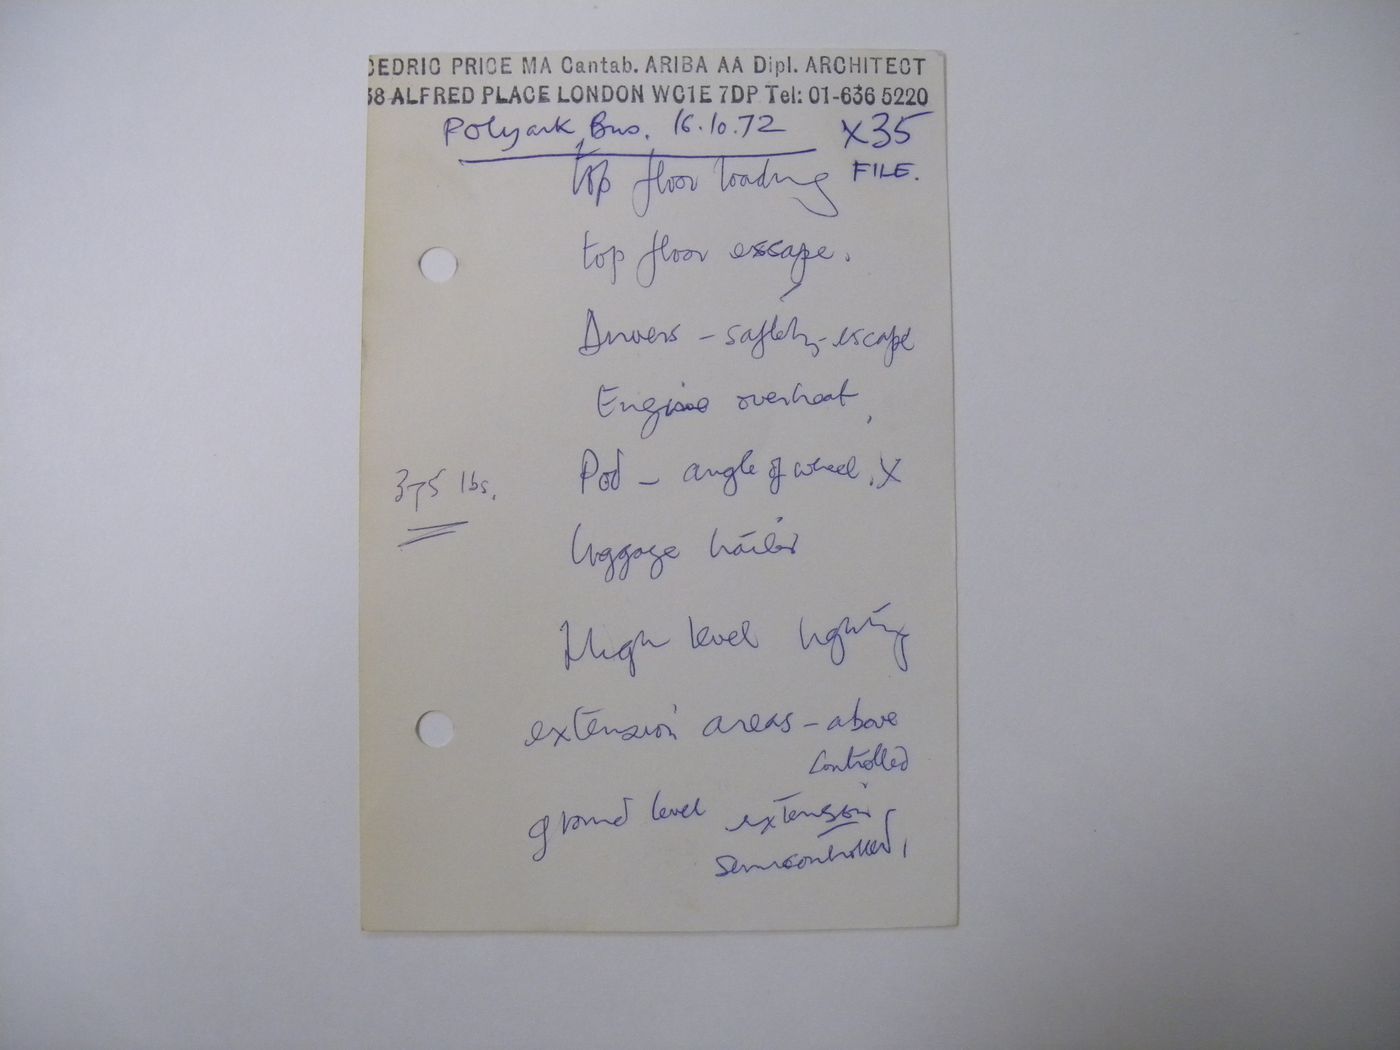 CEDRIC PRICE MA Cantab. ARIBA AA Dipl. ARCHITECT
38 ALFRED PLACE LONDON WC1E 7DP Tel: 01-636 5220
Polyark Bus. 16.10.72 X35
FILE.
top floor loading
top floor escape.
Drivers - safety - escape
Engine overheat,
Pod - angle of wheel. X
375 lbs.
luggage trailer
High level lighting
extension areas - above
controlled
ground level extension
semicontrolled,